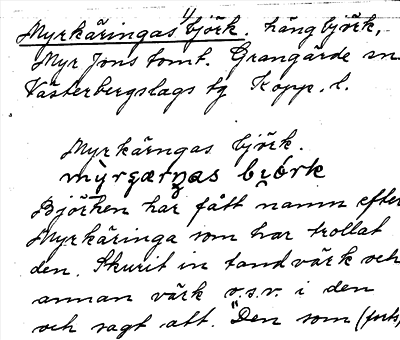 Myrkäringas björk. hängbjörk,
Myr Jons tomt. Grangärde sn.
Västerbergslags tg Kopp. l.
Myrkärngas björk.
Björken har fått namn efter
Myrkäringa som har trollat
den. Skurit in tandvärk och
annan värk o.s.v. i den
och sagt att. "Den som (forts)